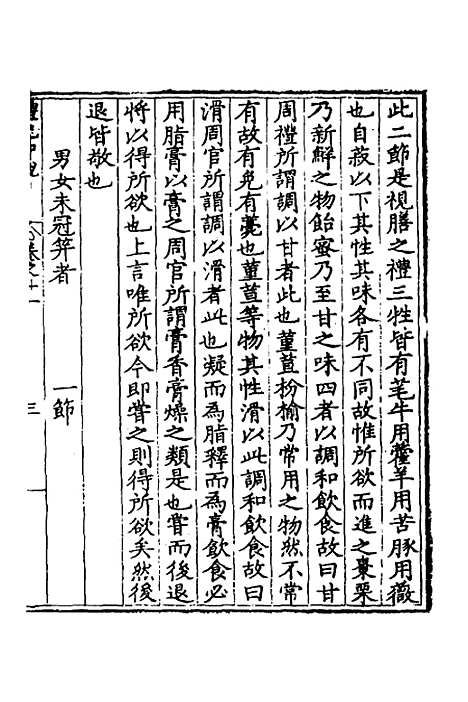 此二節是視膳之禮三牲皆有芼牛用藿羊用苦豚用薇
也自菽以下其性其味各有不同故惟所欲而進之棗栗
乃新鮮之物飴蜜乃至甘之味四者以調和飲食故曰甘
周禮所謂調以甘者此也菫荁枌榆乃常用之物然不常
有故有免有薧也菫荁等物其性滑以此調和飲食故曰
滑周官所謂調以滑者此也凝而為脂釋而為膏飲食必
用脂膏以膏之周官所謂膏香膏燥之類是也嘗而後退
將以得所欲也上言唯所欲今即嘗之則得所欲矣然後
退皆敬也
男女未冠笄者 一節
卷之十一
三